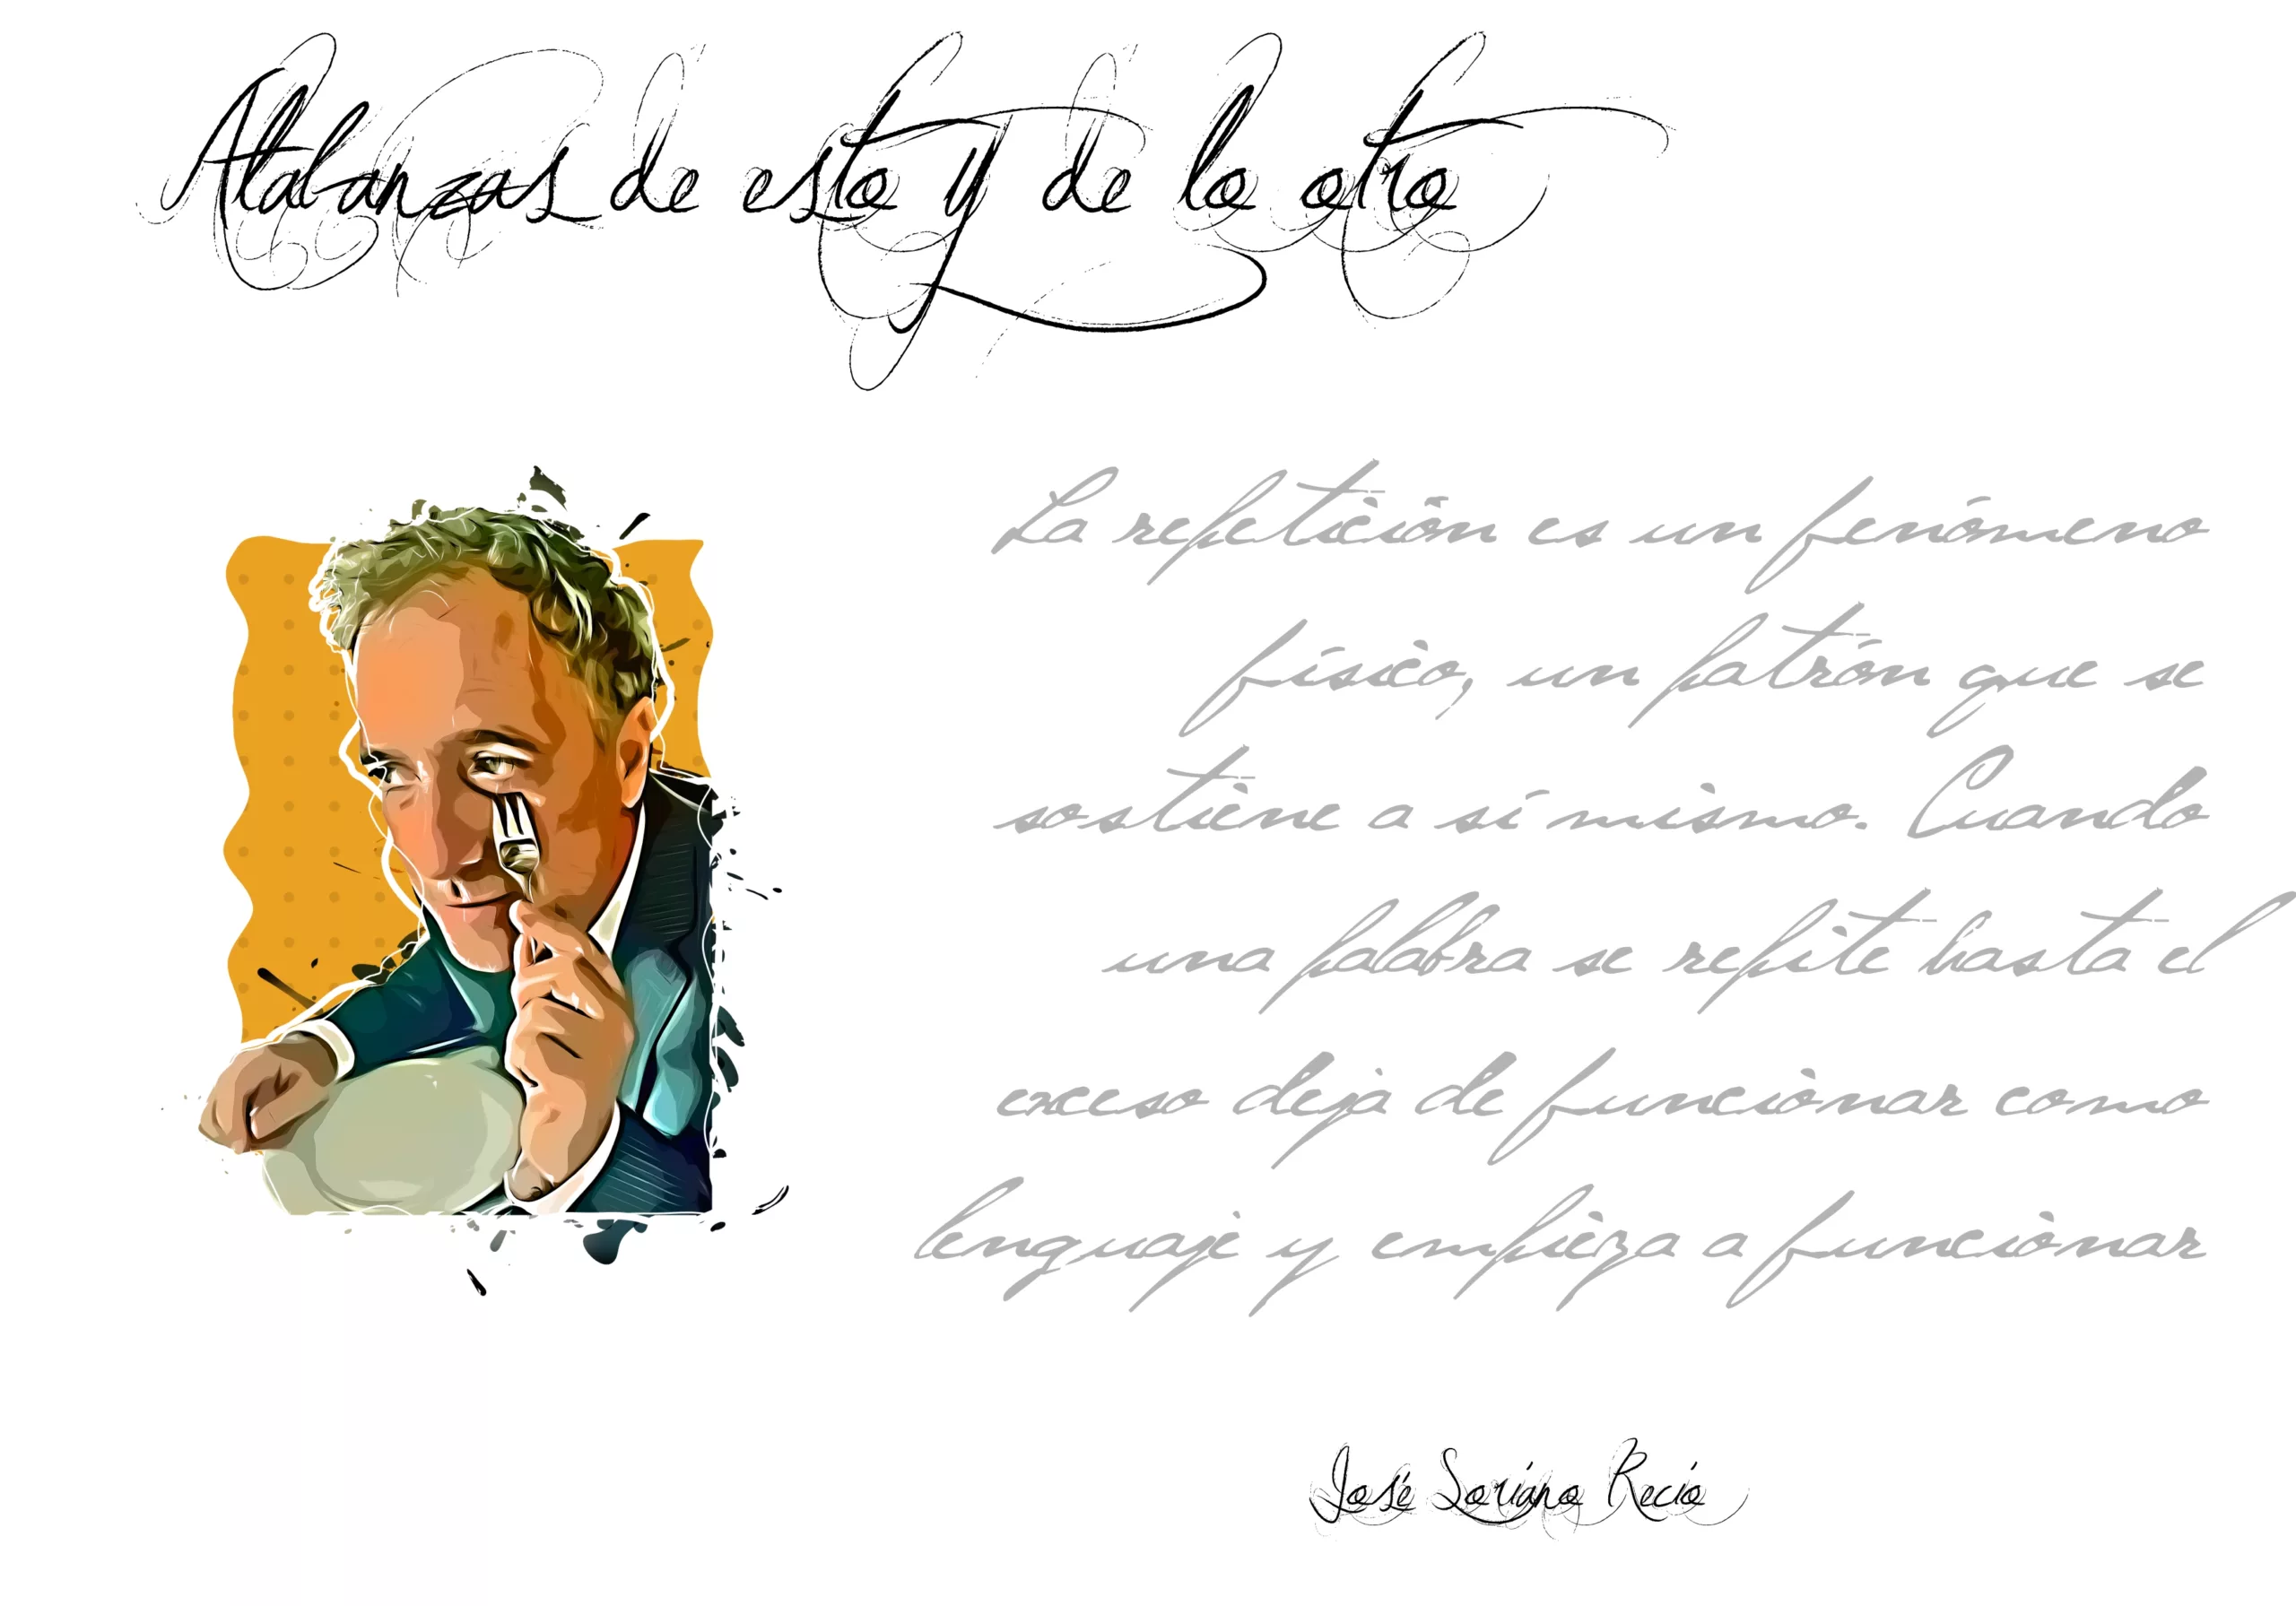 Atabanzas de esto y de lo otro
La repetición es un fenómeno
físico, un patrón que se
sostiene a sí mismo. Cuando
una palabra se repite hasta el
exceso deja de funcionar como
lenguaje y empieza a funcionar
José Soriano Recio